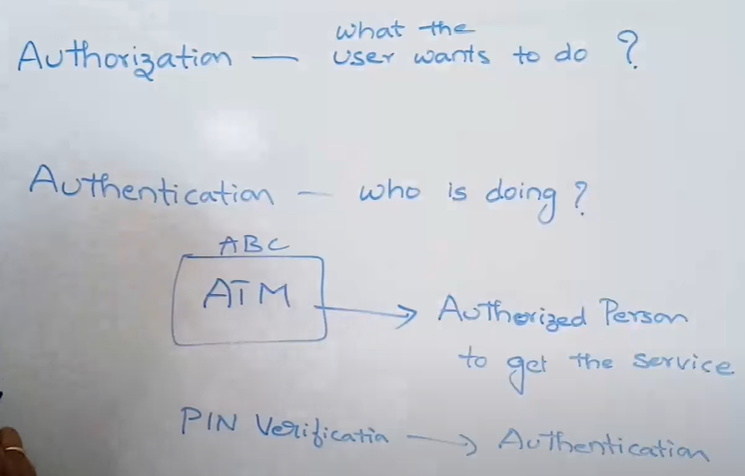 Authorization — what the user wants to do ?
Authentication — who is doing ?
ABC
ATM → Authorized Person
to get the service
PIN Verificatin → Authentication